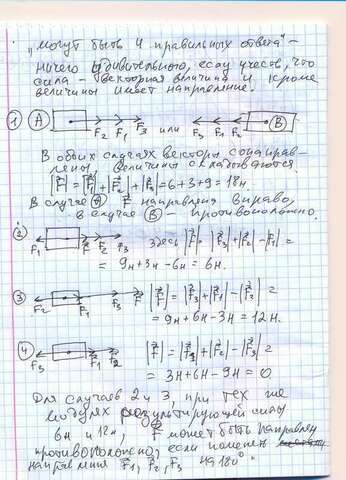 "могут быть 4 правильных ответа" –
ничего удивительного, если учесть, что
сила – векторная величина и кроме
величины имеет направление.
1 A F₂ F₁ F₃ или F₃ F₁ F₂ B
В обоих случаях векторы сонаправ-
лены, величины складываются.
|F| = |F₁| + |F₂| + |F₃| = 6 + 3 + 9 = 18н.
В случае A F направлена вправо,
в случае B – противоположно.
2 F₁ F F₂ F₃ здесь |F| = |F₃| + |F₂| – |F₁| =
= 9н + 3н – 6н = 6н.
3 F₂ F₁ F₃ F |F| = |F₃| + |F₁| – |F₂| =
= 9н + 6н – 3н = 12н.
4 F₃ F₁ F₂ |F| = |F₁| + |F₂| – |F₃| =
= 3н + 6н – 9н = 0
Для случаев 2 и 3, при тех же
модулях результирующей силы
6н и 12н, F может быть направлен
противоположно, если поменять
направления F₁, F₂, F₃ на 180°.